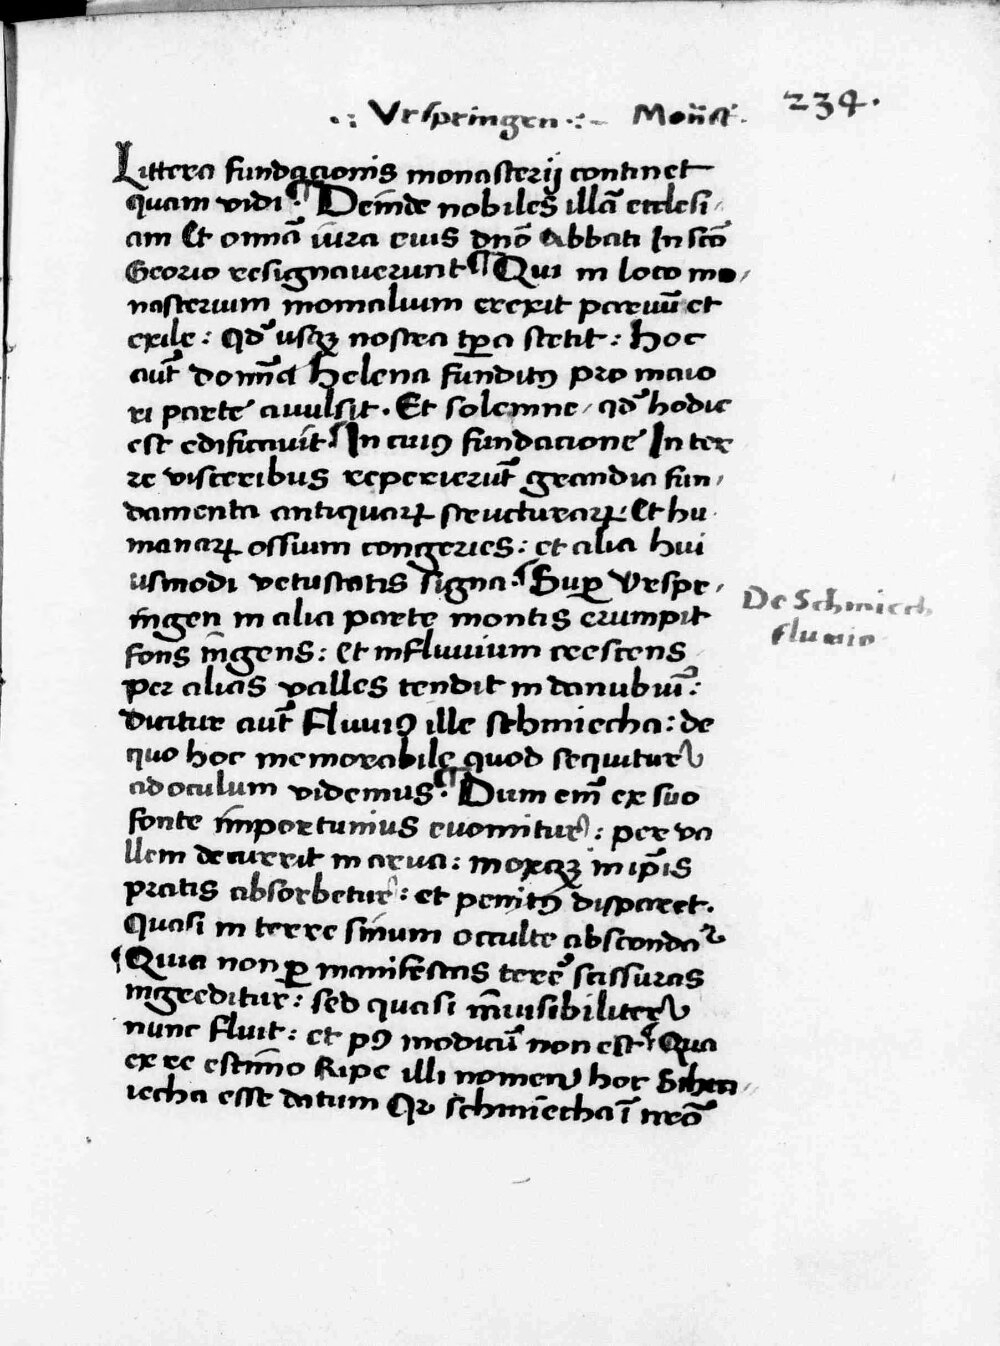 .: Urspringen .:- Monst̃. 234.
Littera fundacionis monasterij continet
quam vidi. ¶ Deinde nobiles illā ecclesi-
am Et omnia iura eius dnō Abbati In scō
Georio resignaverunt ¶ Qui in loco mo-
nasterium monialium erexit parvū et
exile: qd usqz nostra tp̄a stetit: hoc
aut̄ domina helena funditꝰ pro maio
ri parte avulsit. Et solemne, qd hodie
est edificavit ¶ In cuiꝰ fundacione In ter
re visceribus reperierūt grandia fun-
damenta antiquaꝝ structuraꝝ. Et hu
manaꝝ ossium congeries: et alia hui
usmodi vetustatis signa. ¶ Suꝑ Urspr-
ingen in alia parte montis erumpit
fons ingens: Et in fluvium crescens
per alias valles tendit in danubiū:
dicitur aut̄ fluviꝰ ille schmiecha: de
quo hoc memorabile quod sequitur
ad oculum videmus. ¶ Dum em̄ ex suo
fonte importunius evomitur: per va
llem decurrit in arva: moxqz in ip̄is
pratis absorbetur: et penitꝰ disparet.
Quasi in terre sinum occulte absconda
¶ Quia non ꝑ manifestas terre scissuras
ingreditur: sed quasi invisibiliter
nunc fluit: et pꝰ modicū non est ¶ Qua
ex re estimo Ripe illi nomen hoc Schm-
iecha esse datum Qr schmiecha ī nrō
De Schmiech
fluvio